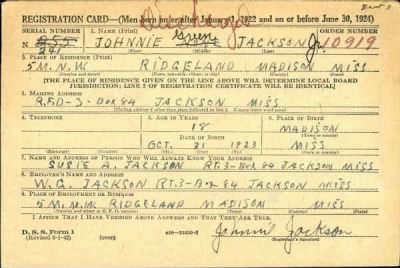 REGISTRATION CARD—(Men born on or after January 1, 1922 and on or before June 30, 1924)
SERIAL NUMBER 1. NAME (Print) ORDER NUMBER
Green
N 241 JOHNNIE JACKSON Jr 10919
(First) (Middle) (Last)
2. PLACE OF RESIDENCE (Print)
5 M. N.W. RIDGELAND MADISON MISS
(Number and street) (Town, township, village, or city) (County) (State)
[THE PLACE OF RESIDENCE GIVEN ON THE LINE ABOVE WILL DETERMINE LOCAL BOARD
JURISDICTION; LINE 2 OF REGISTRATION CERTIFICATE WILL BE IDENTICAL]
3. MAILING ADDRESS
R.F.D-3-Box 84 JACKSON MISS
[Mailing address if other than place indicated on line 2. If same insert word same]
4. TELEPHONE 5. AGE IN YEARS 6. PLACE OF BIRTH
18 MADISON
DATE OF BIRTH
OCT. 31 1923 MISS
7. NAME AND ADDRESS OF PERSON WHO WILL ALWAYS KNOW YOUR ADDRESS
SUSIE A. JACKSON RT.3-Box 84 JACKSON MISS
8. EMPLOYER'S NAME AND ADDRESS
W.G. JACKSON RT.3-Box 84 JACKSON MISS
9. PLACE OF EMPLOYMENT OR BUSINESS
5 M. N.W. RIDGELAND MADISON MISS
I AFFIRM THAT I HAVE VERIFIED ABOVE ANSWERS AND THAT THEY ARE TRUE.
D. S. S. Form 1
Johnnie Jackson
(Registrant's signature)